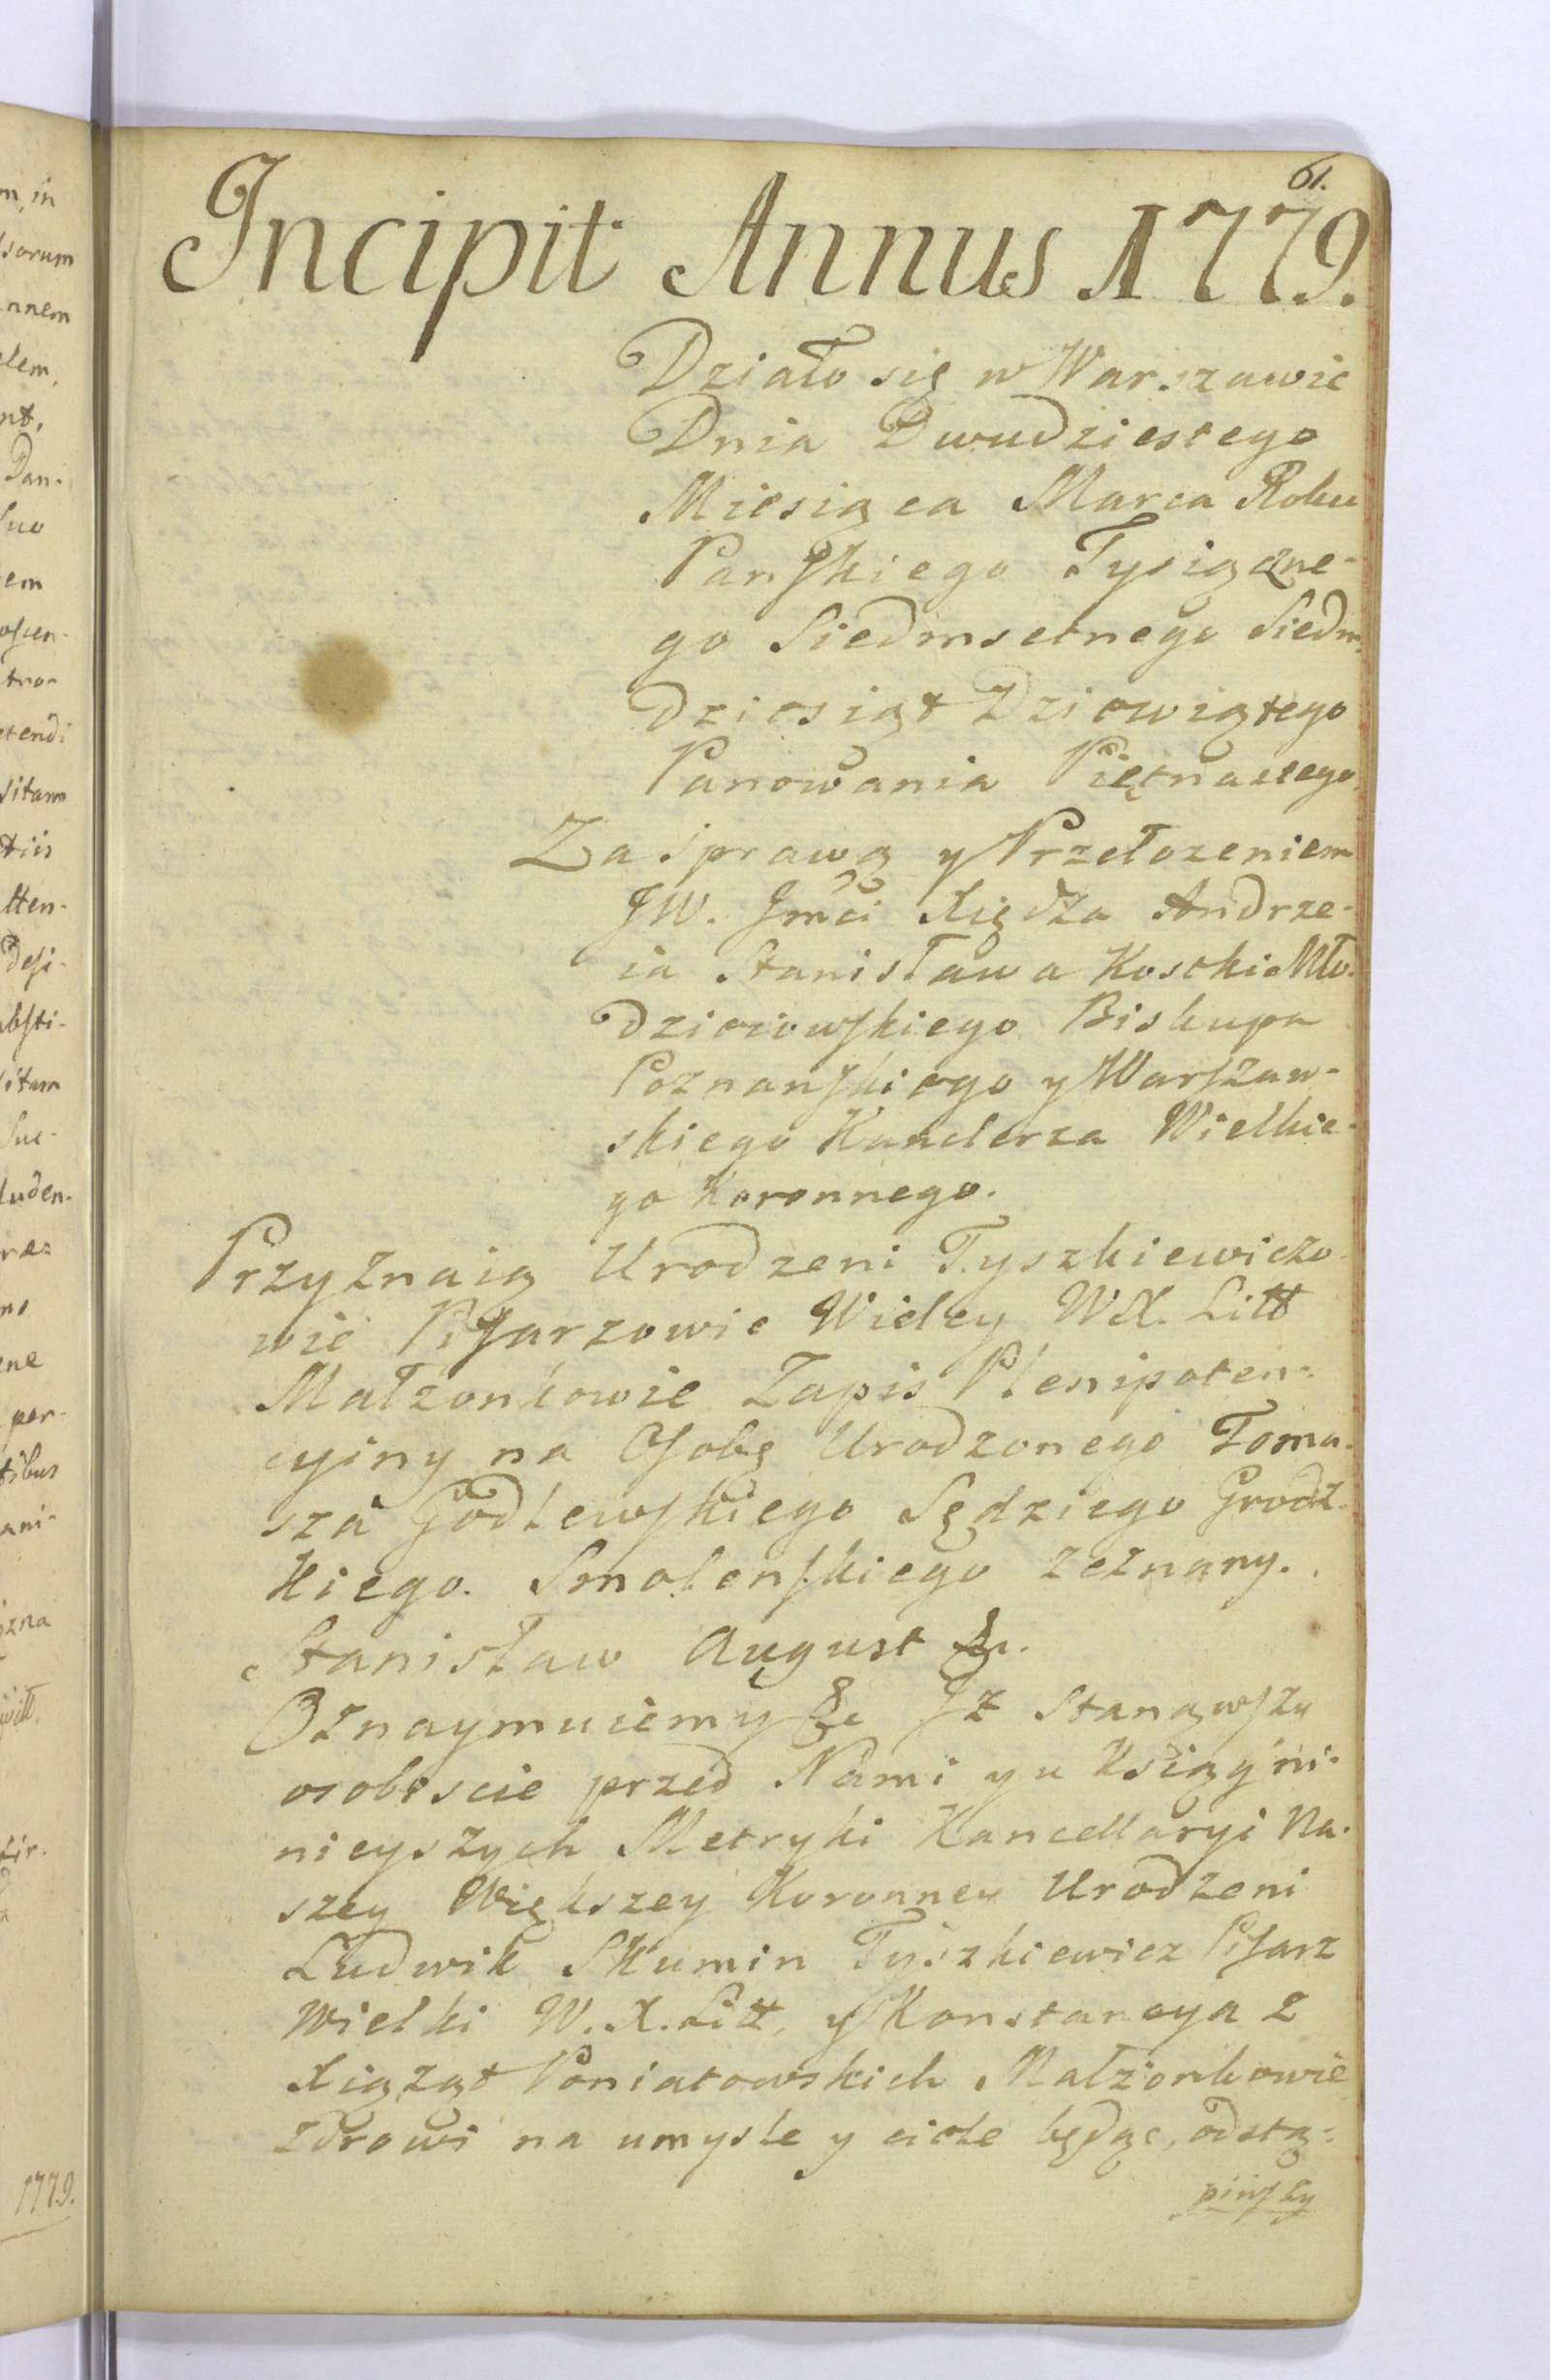 61.
Incipit Annus 1779.
Działo się w Warszawie
Dnia Dwudziestego
Miesiąca Marca Roku
Panskiego Tysiączne-
go Siedmsetnego Siedm-
dziesiąt Dziewiątego
Panowania Piętnastego.
Za sprawą y Przełozeniem
JW. Jmci Xiędza Andrze-
ia Stanisława Kostki Mło-
dzieiowskiego Biskupa
Poznanskiego y Warszaw-
skiego Kanclerza Wielkie-
go Koronnego.
Przyznaią Urodzeni Tyszkiewiczo-
wie Pisarzowie Wielcy WX. Litt
Małzonkowie Zapis Plenipoten-
cyiny na Osobę Urodzonego Toma-
sza Godlewskiego Sędziego Grodz-
kiego. Smolenskiego zeznany.
Stanisław August &c.
Oznaymuiemy &c Jz Stanąwszy
osobiscie przed Nami y u Ksiąg ni-
nieyszych Metryki Kancellaryi Na-
szey Większey Koronney Urodzeni
Ludwik Skumin Tyszkiewicz Pisarz
Wielki W. X. Litt. y Konstancya z
Xiążąt Poniatowskich Małzonkowie
zdrowi na umysle y ciele będąc, odstą-
piwszy
m, in
sorum
nnem
elem,
nt,
Dan-
suo
em
tro-
etendi
sitam
tiis
tten-
desi-
absti-
sitam
Suc-
luden-
ne
per-
tibus
ani-
1779.